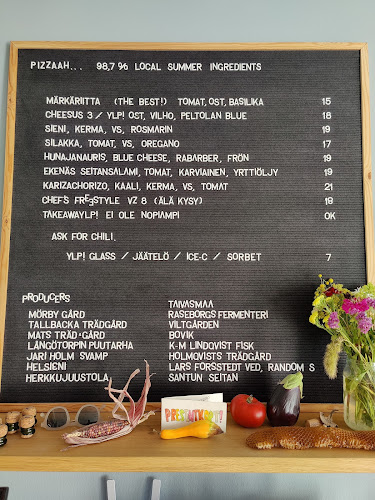 PIZZAAH... 98,7 % LOCAL SUMMER INGREDIENTS
MÄRKÄRIITTA (THE BEST!) TOMAT, OST, BASILIKA 15
CHEESUS 3 / YLP! OST, VILHO, PELTOLAN BLUE 18
SIENI, KERMA, VS, ROSMARIN 19
SILAKKA, TOMAT, VS, OREGANO 17
HUNAJANAURIS, BLUE CHEESE, RABARBER, FRÖN 19
EKENÄS SEITANSALAMI, TOMAT, KARVIAINEN, YRTTIÖLJY 19
KARIZACHORIZO, KAALI, KERMA, VS, TOMAT 21
CHEF'S FREESTYLE VZ 8 (ÄLÄ KYSY) 19
TAKEAWAYLP! EI OLE NOPIAMPI OK
ASK FOR CHILI.
YLP! GLASS / JÄÄTELÖ / ICE-C / SORBET 7
PRODUCERS
MÖRBY GÅRD
TALLBACKA TRÄDGÅRD
MATS TRÄDGÅRD
LÅNGÖTORPIN PUUTARHA
JARI HOLM SVAMP
HELSIENI
HERKKUJUUSTOLA
TAIVASMAA
RASEBORGS FERMENTERI
VILTGÅRDEN
BOVIK
K-M LINDQVIST FISK
HOLMQVISTS TRÄDGÅRD
LARS FORSSTEDT VED, RANDOM S
SANTUN SEITAN